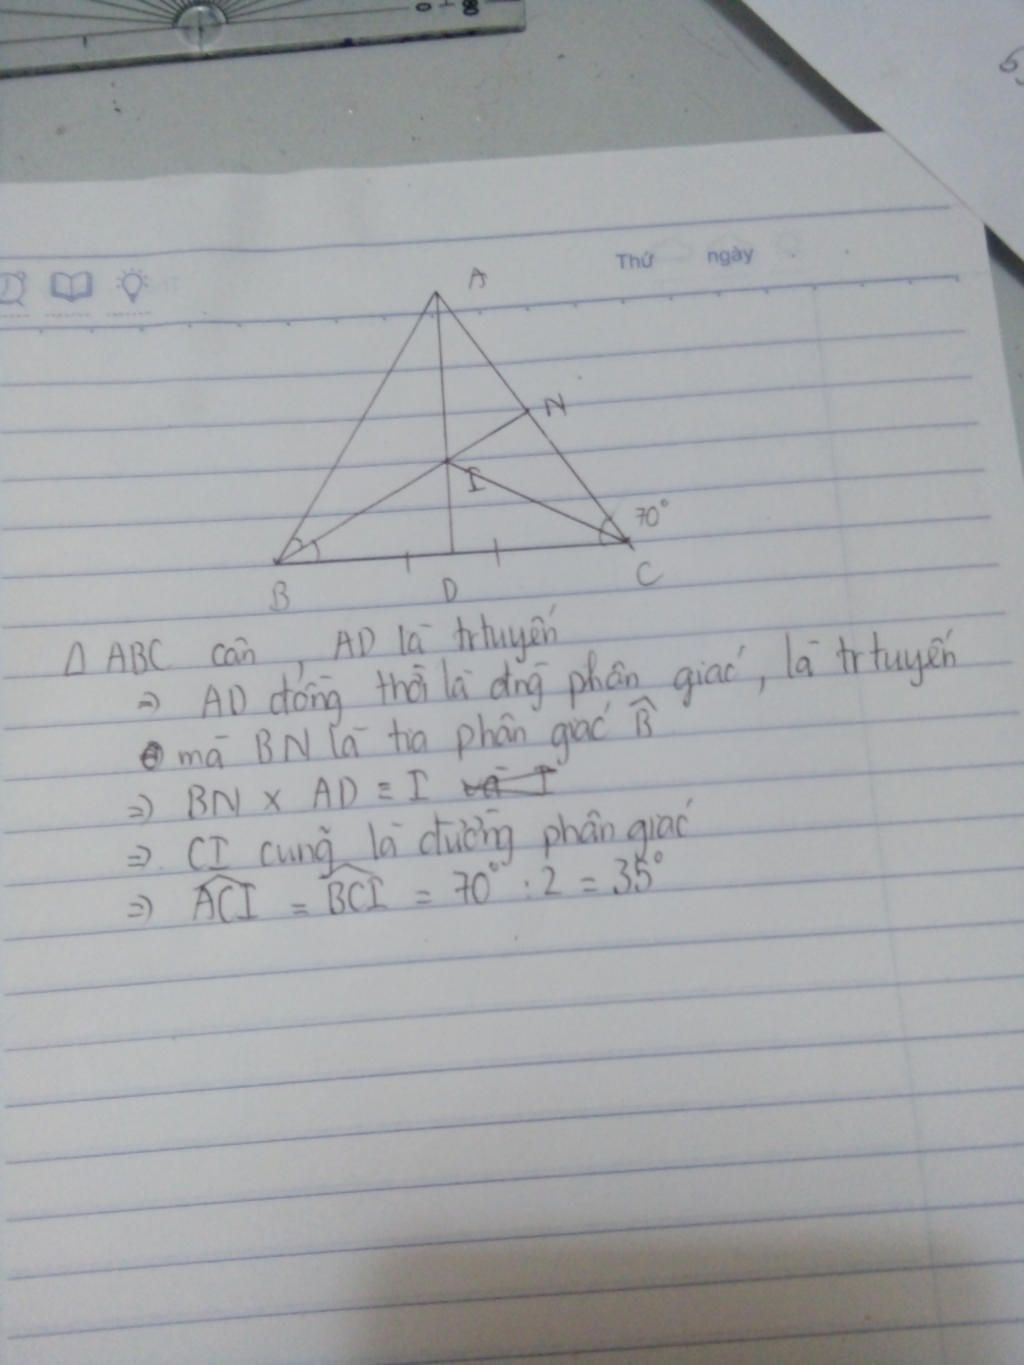 Thứ ngày
A
N
I
70°
B
D
C
Δ ABC cân, AD là trtuyến
⇒ AD đồng thời là đng phân giác, là trtuyến
mà BN là tia phân giác B̂
⇒ BN × AD ≡ I
⇒ CI cũng là đường phân giác
⇒ ACI = BCI = 70° : 2 = 35°